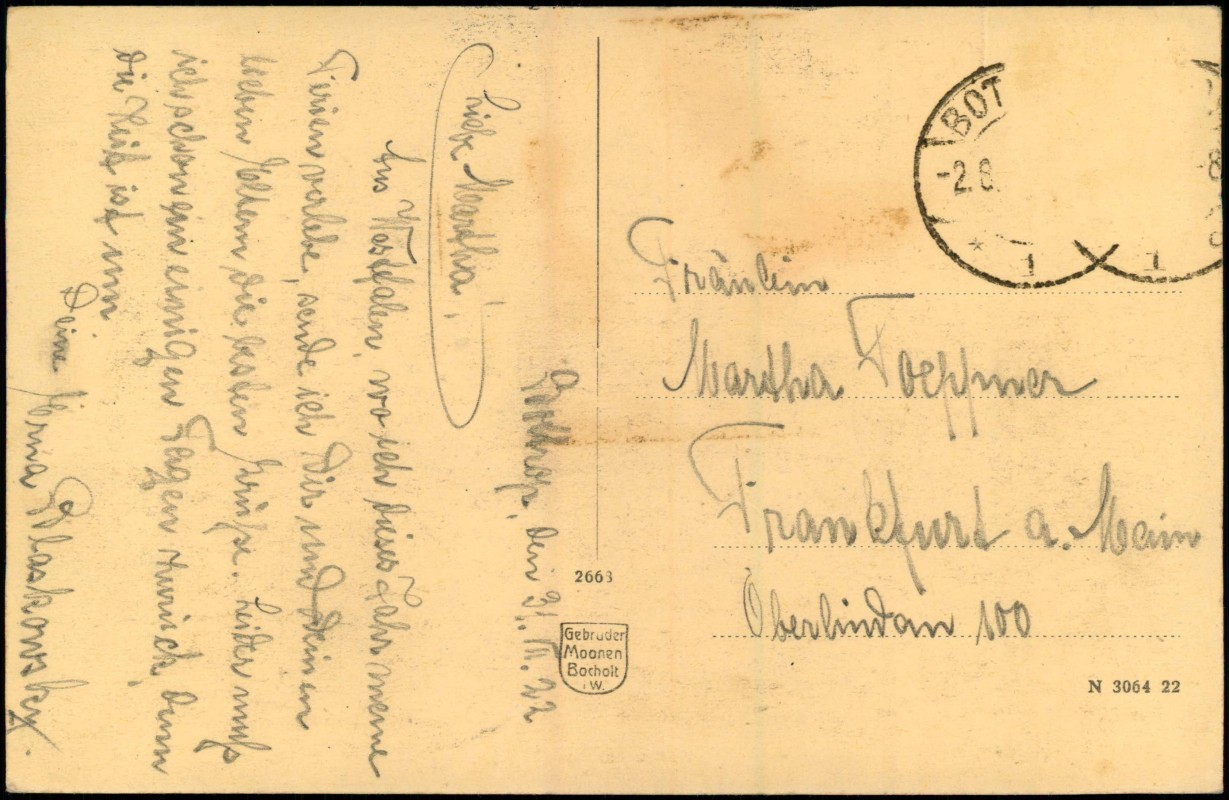 Bottrop, den 31. VII. 22
Liebe Martha!
Aus Westfalen, wo ich dieses Jahr meine
Ferien verlebe, sende ich Dir und Deinen
lieben Eltern die besten Grüße. Leider muß
ich schon in einigen Tagen zurück, denn
die Zeit ist um
Deine Erna Blaskowsky.
BOT
-2.8.
* 1
1
-8
Fräulein
Martha Toeppner
Frankfurt a. Main
Oberlindau 100
2663
Gebrüder
Moonen
Bocholt
i.W.
N 3064 22